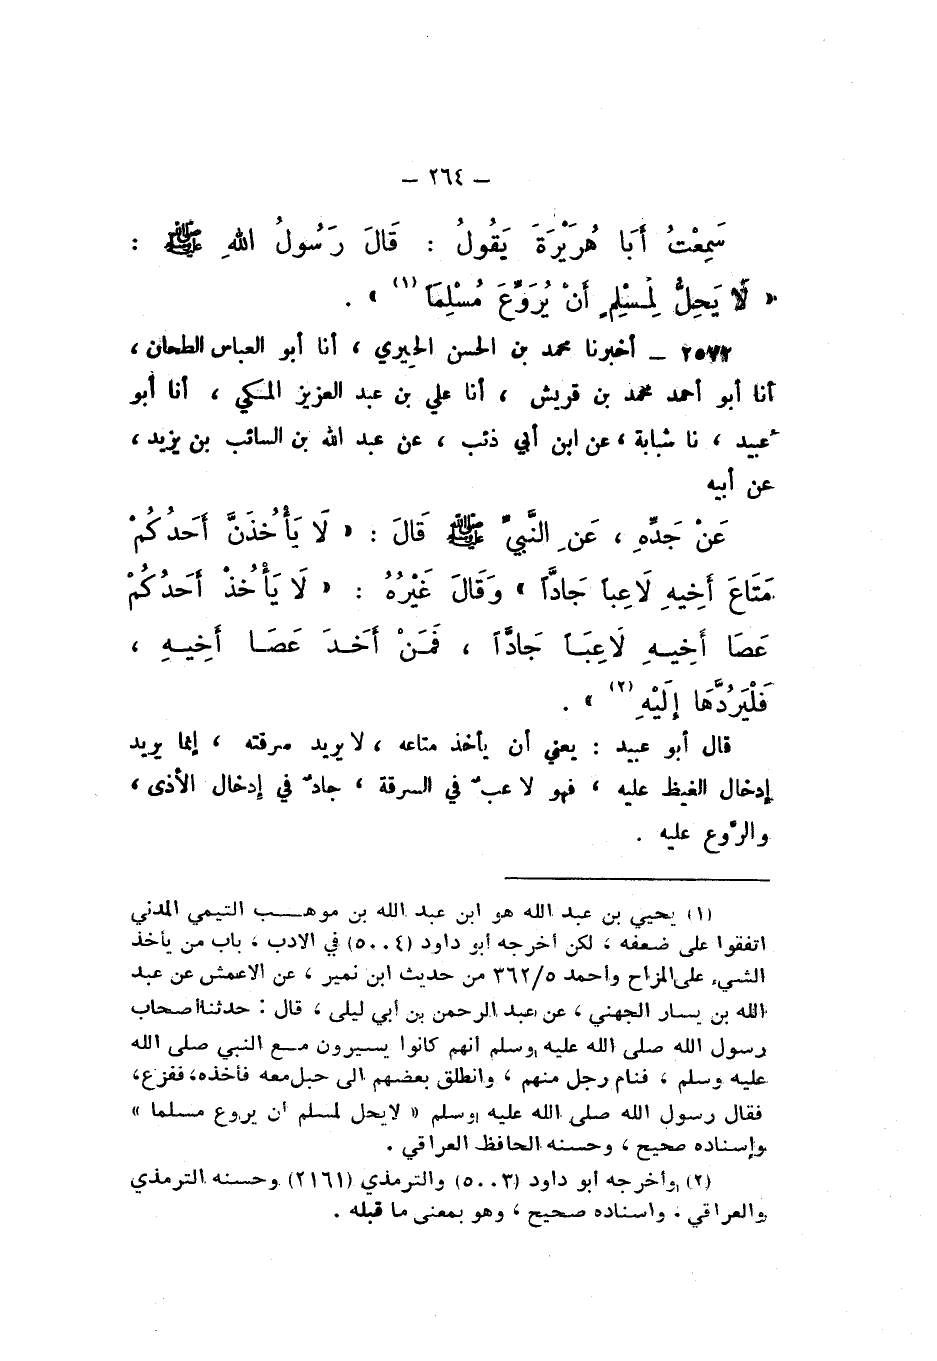 – ٢٦٤ –
سَمِعْتُ أَبَا هُرَيْرَةَ يَقُولُ : قَالَ رَسُولُ اللهِ ﷺ :
« لَا يَحِلُّ لِمُسْلِمٍ أَنْ يُرَوِّعَ مُسْلِمَاً (١) » .
٢٥٧٢ – أخبرنا محمد بن الحسن الحِيري ، أنا أبو العباس الطحان ،
أنا أبو أحمد محمد بن قريش ، أنا علي بن عبد العزيز المكي ، أنا أبو
عبيد ، نا شبابة ، عن ابن أبي ذئب ، عن عبد الله بن السائب بن يزيد ،
عن أبيه
عَنْ جَدِّهِ ، عَنِ النَّبِيِّ ﷺ قَالَ : « لَا يَأْخُذَنَّ أَحَدُكُمْ
مَتَاعَ أَخِيهِ لَاعِباً جَادَّاً » وَقَالَ غَيْرُهُ : « لَا يَأْخُذْ أَحَدُكُمْ
عَصَا أَخِيهِ لَاعِبَاً جَادَّاً ، فَمَنْ أَخَذَ عَصَا أَخِيهِ ،
فَلْيَرُدَّهَا إِلَيْهِ (٢) » .
قال أبو عبيد : يعني أن يأخذ متاعه ، لا يريد سرقته ، إنما يريد
إدخال الغيظ عليه ، فهو لاعبٌ في السرقة ، جادٌ في إدخال الأذى ،
والرَّوع عليه .
(١) يحيي بن عبد الله هو ابن عبد الله بن موهب التيمي المدني
اتفقوا على ضعفه ، لكن أخرجه أبو داود (٥٠٠٤) في الادب ، باب من يأخذ
الشيء على المزاح وأحمد ٣٦٢/٥ من حديث ابن نمير ، عن الاعمش عن عبد
الله بن يسار الجهني ، عن عبد الرحمن بن أبي ليلى ، قال : حدثنا أصحاب
رسول الله صلى الله عليه وسلم أنهم كانوا يسيرون مع النبي صلى الله
عليه وسلم ، فنام رجل منهم ، وانطلق بعضهم الى حبل معه فأخذه، ففزع،
فقال رسول الله صلى الله عليه وسلم « لايحل لمسلم أن يروع مسلما »
وإسناده صحيح ، وحسنه الحافظ العراقي .
(٢) وأخرجه أبو داود (٥٠٠٣) والترمذي (٢١٦١) وحسنه الترمذي
والعراقي . واسناده صحيح ، وهو بمعنى ما قبله .